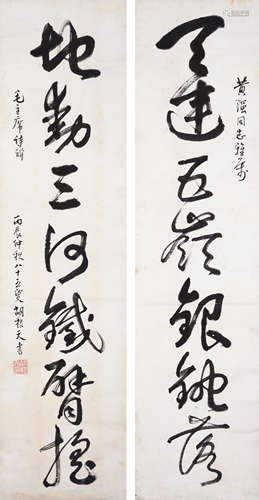 黄强同志雅屬
天連五嶺銀鋤落
地動三河鐵臂搖
毛主席詩
丙辰仲秋八十五叟胡根天書